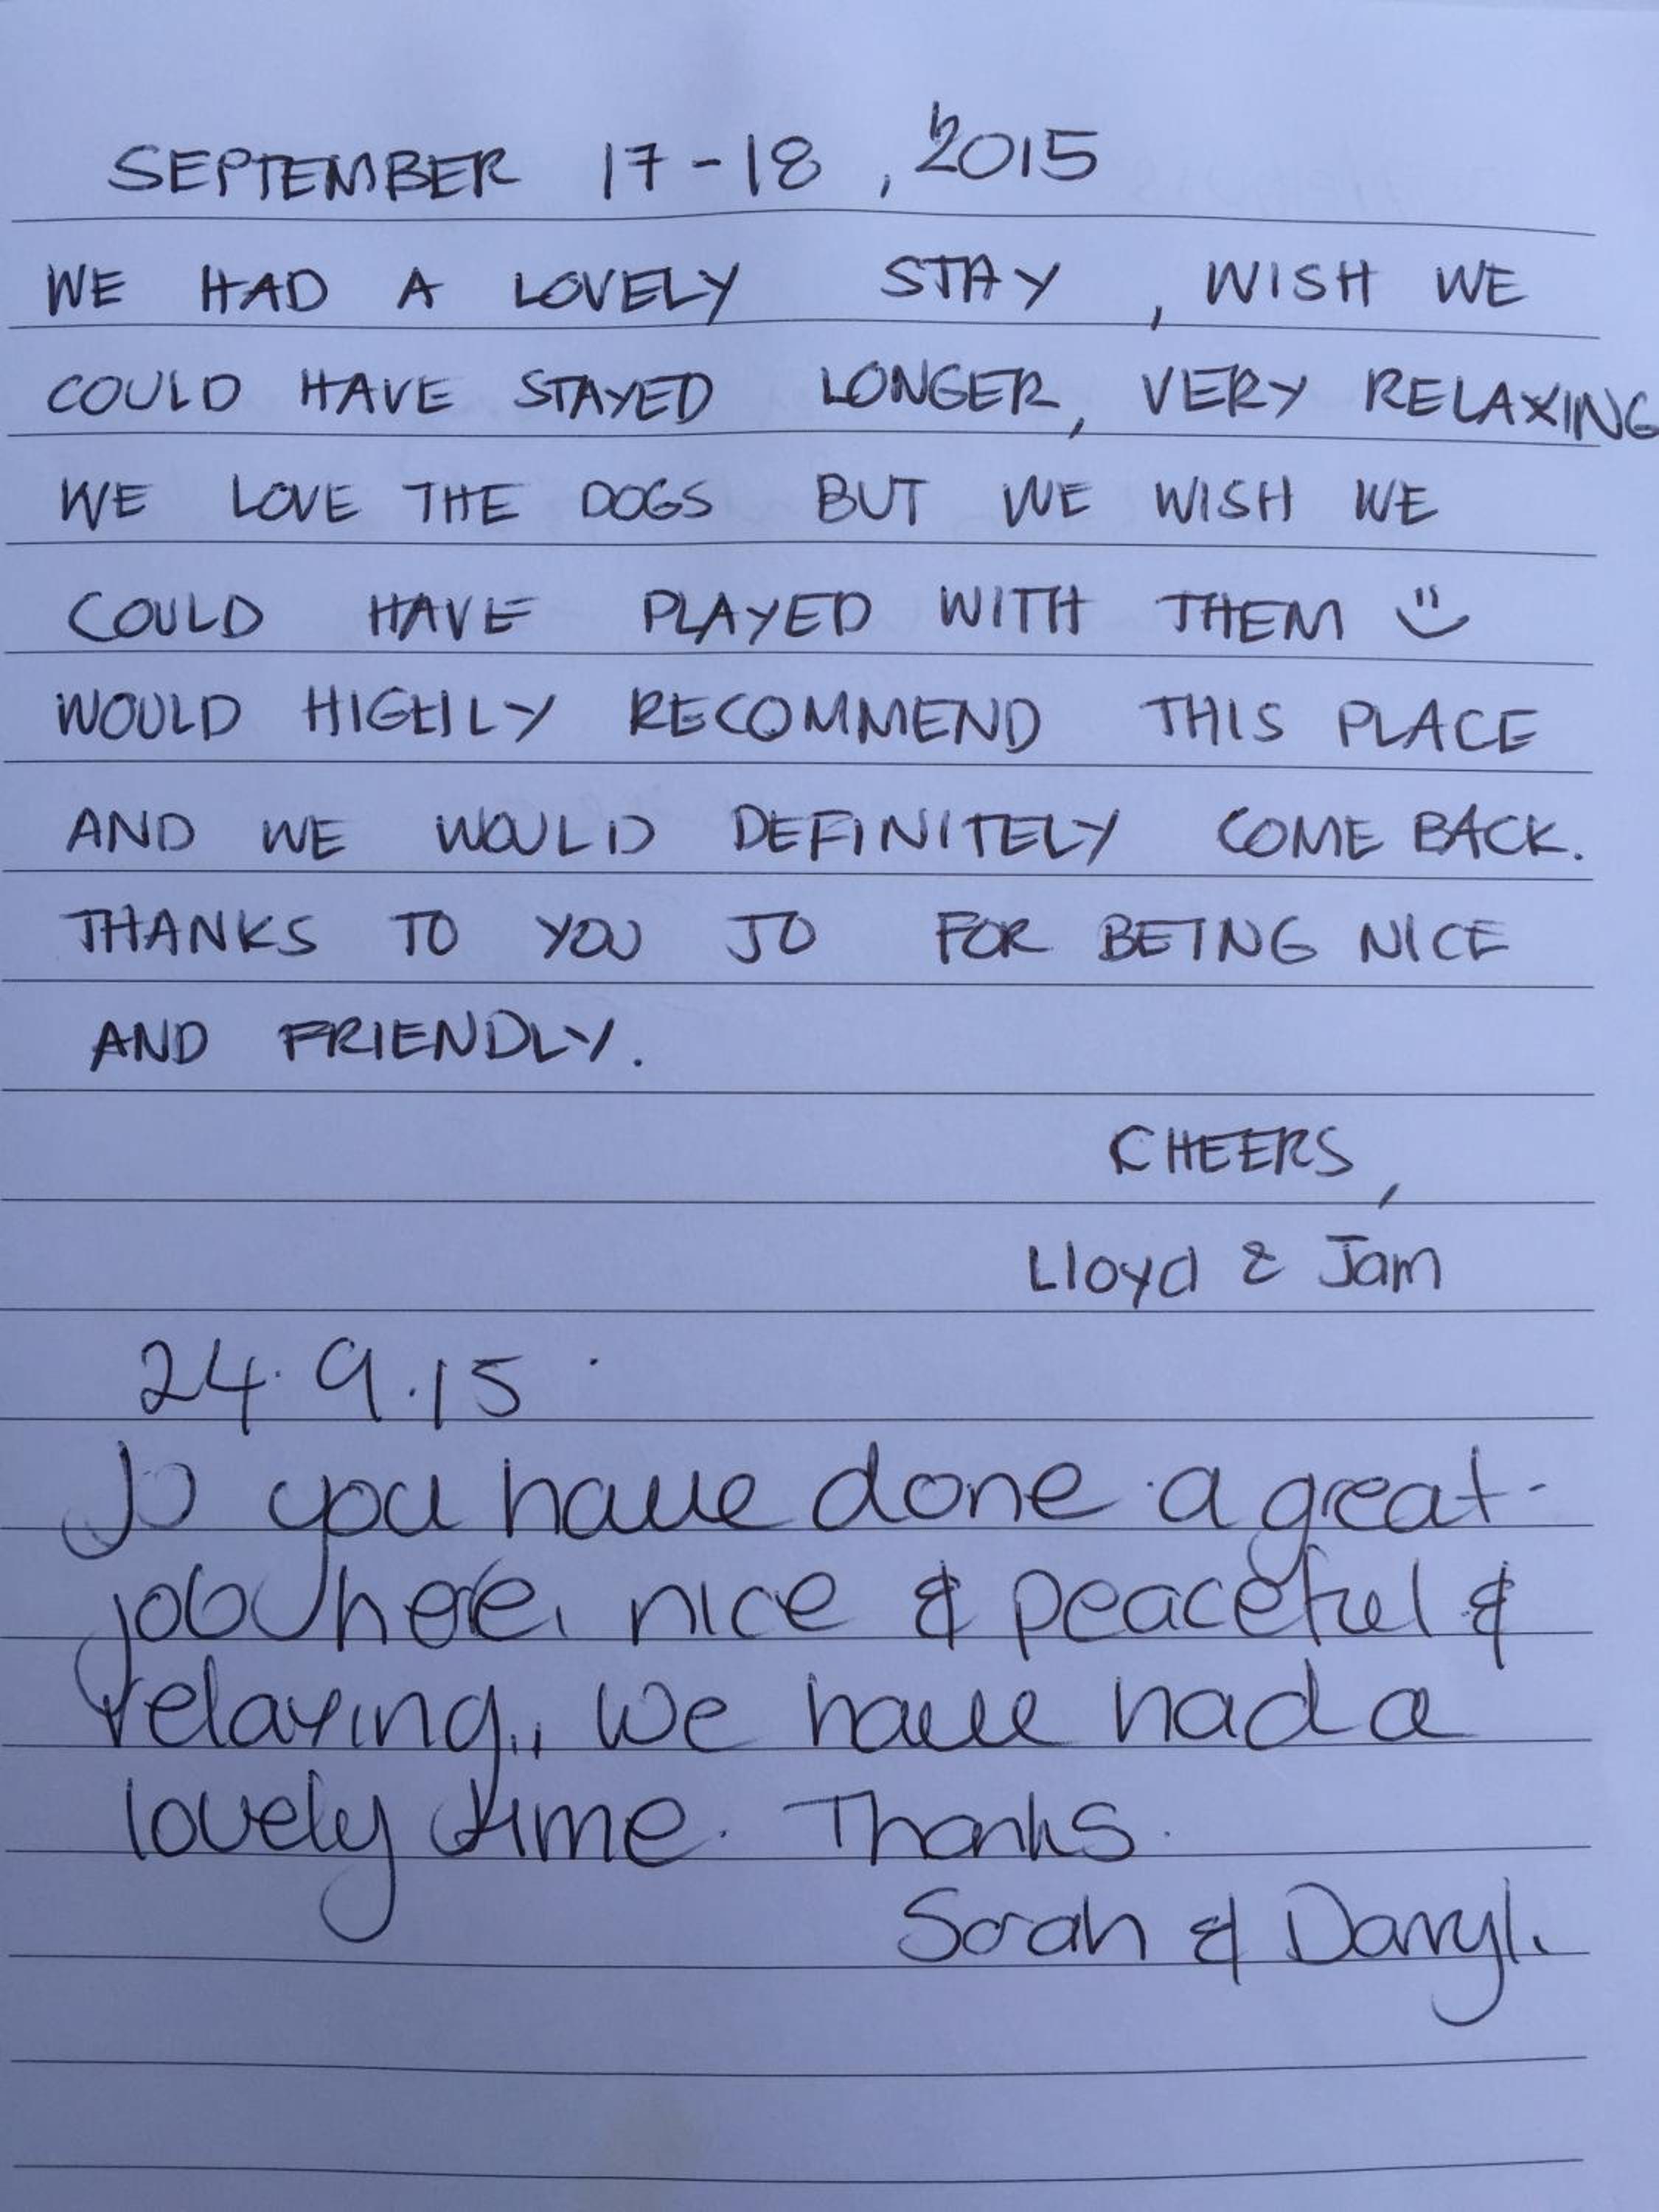 SEPTEMBER 17-18, 2015
WE HAD A LOVELY STAY, WISH WE
COULD HAVE STAYED LONGER, VERY RELAXING
WE LOVE THE DOGS BUT WE WISH WE
COULD HAVE PLAYED WITH THEM
WOULD HIGHLY RECOMMEND THIS PLACE
AND WE WOULD DEFINITELY COME BACK.
THANKS TO YOU JO FOR BEING NICE
AND FRIENDLY.
CHEERS,
Lloyd & Jam
24.9.15.
Jo you have done a great
job here, nice & peaceful &
relaxing., We have had a
lovely time. Thanks.
Sarah & Darryl.